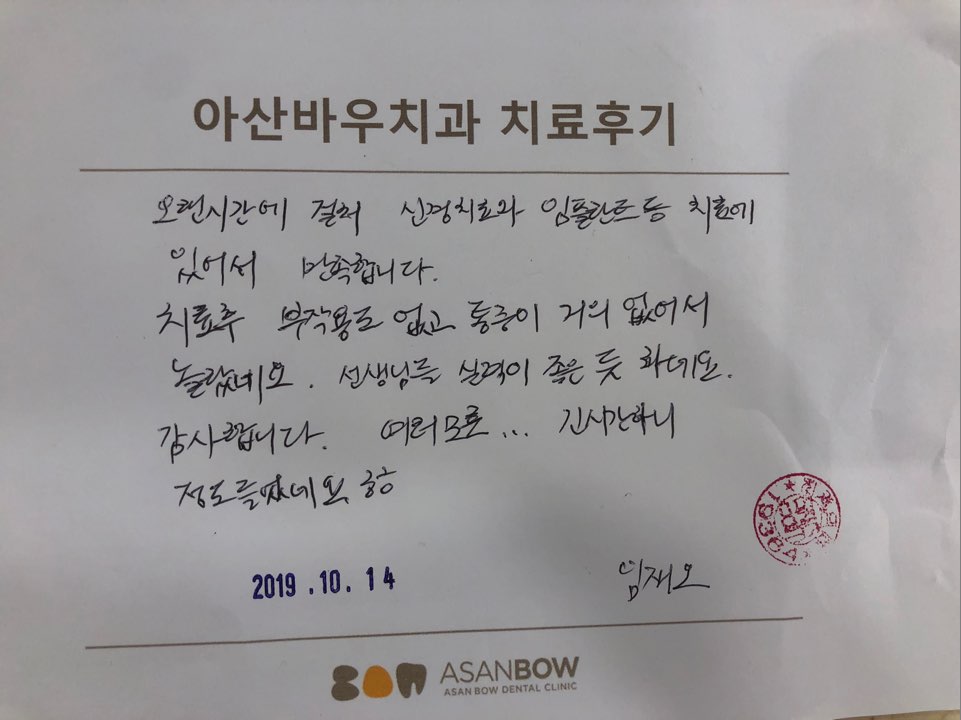 아산바우치과 치료후기
오랜시간에 걸쳐 신경치료와 임플란트등 치료에
있어서 만족합니다.
치료후 부작용도 없고 통증이 거의 없어서
놀랐네요. 선생님들 실력이 좋은 듯 하네요.
감사합니다. 여러모로... 긴시간하니
정도들었네요 ㅎㅎ
2019.10.14
임재오
ASANBOW
ASAN BOW DENTAL CLINIC